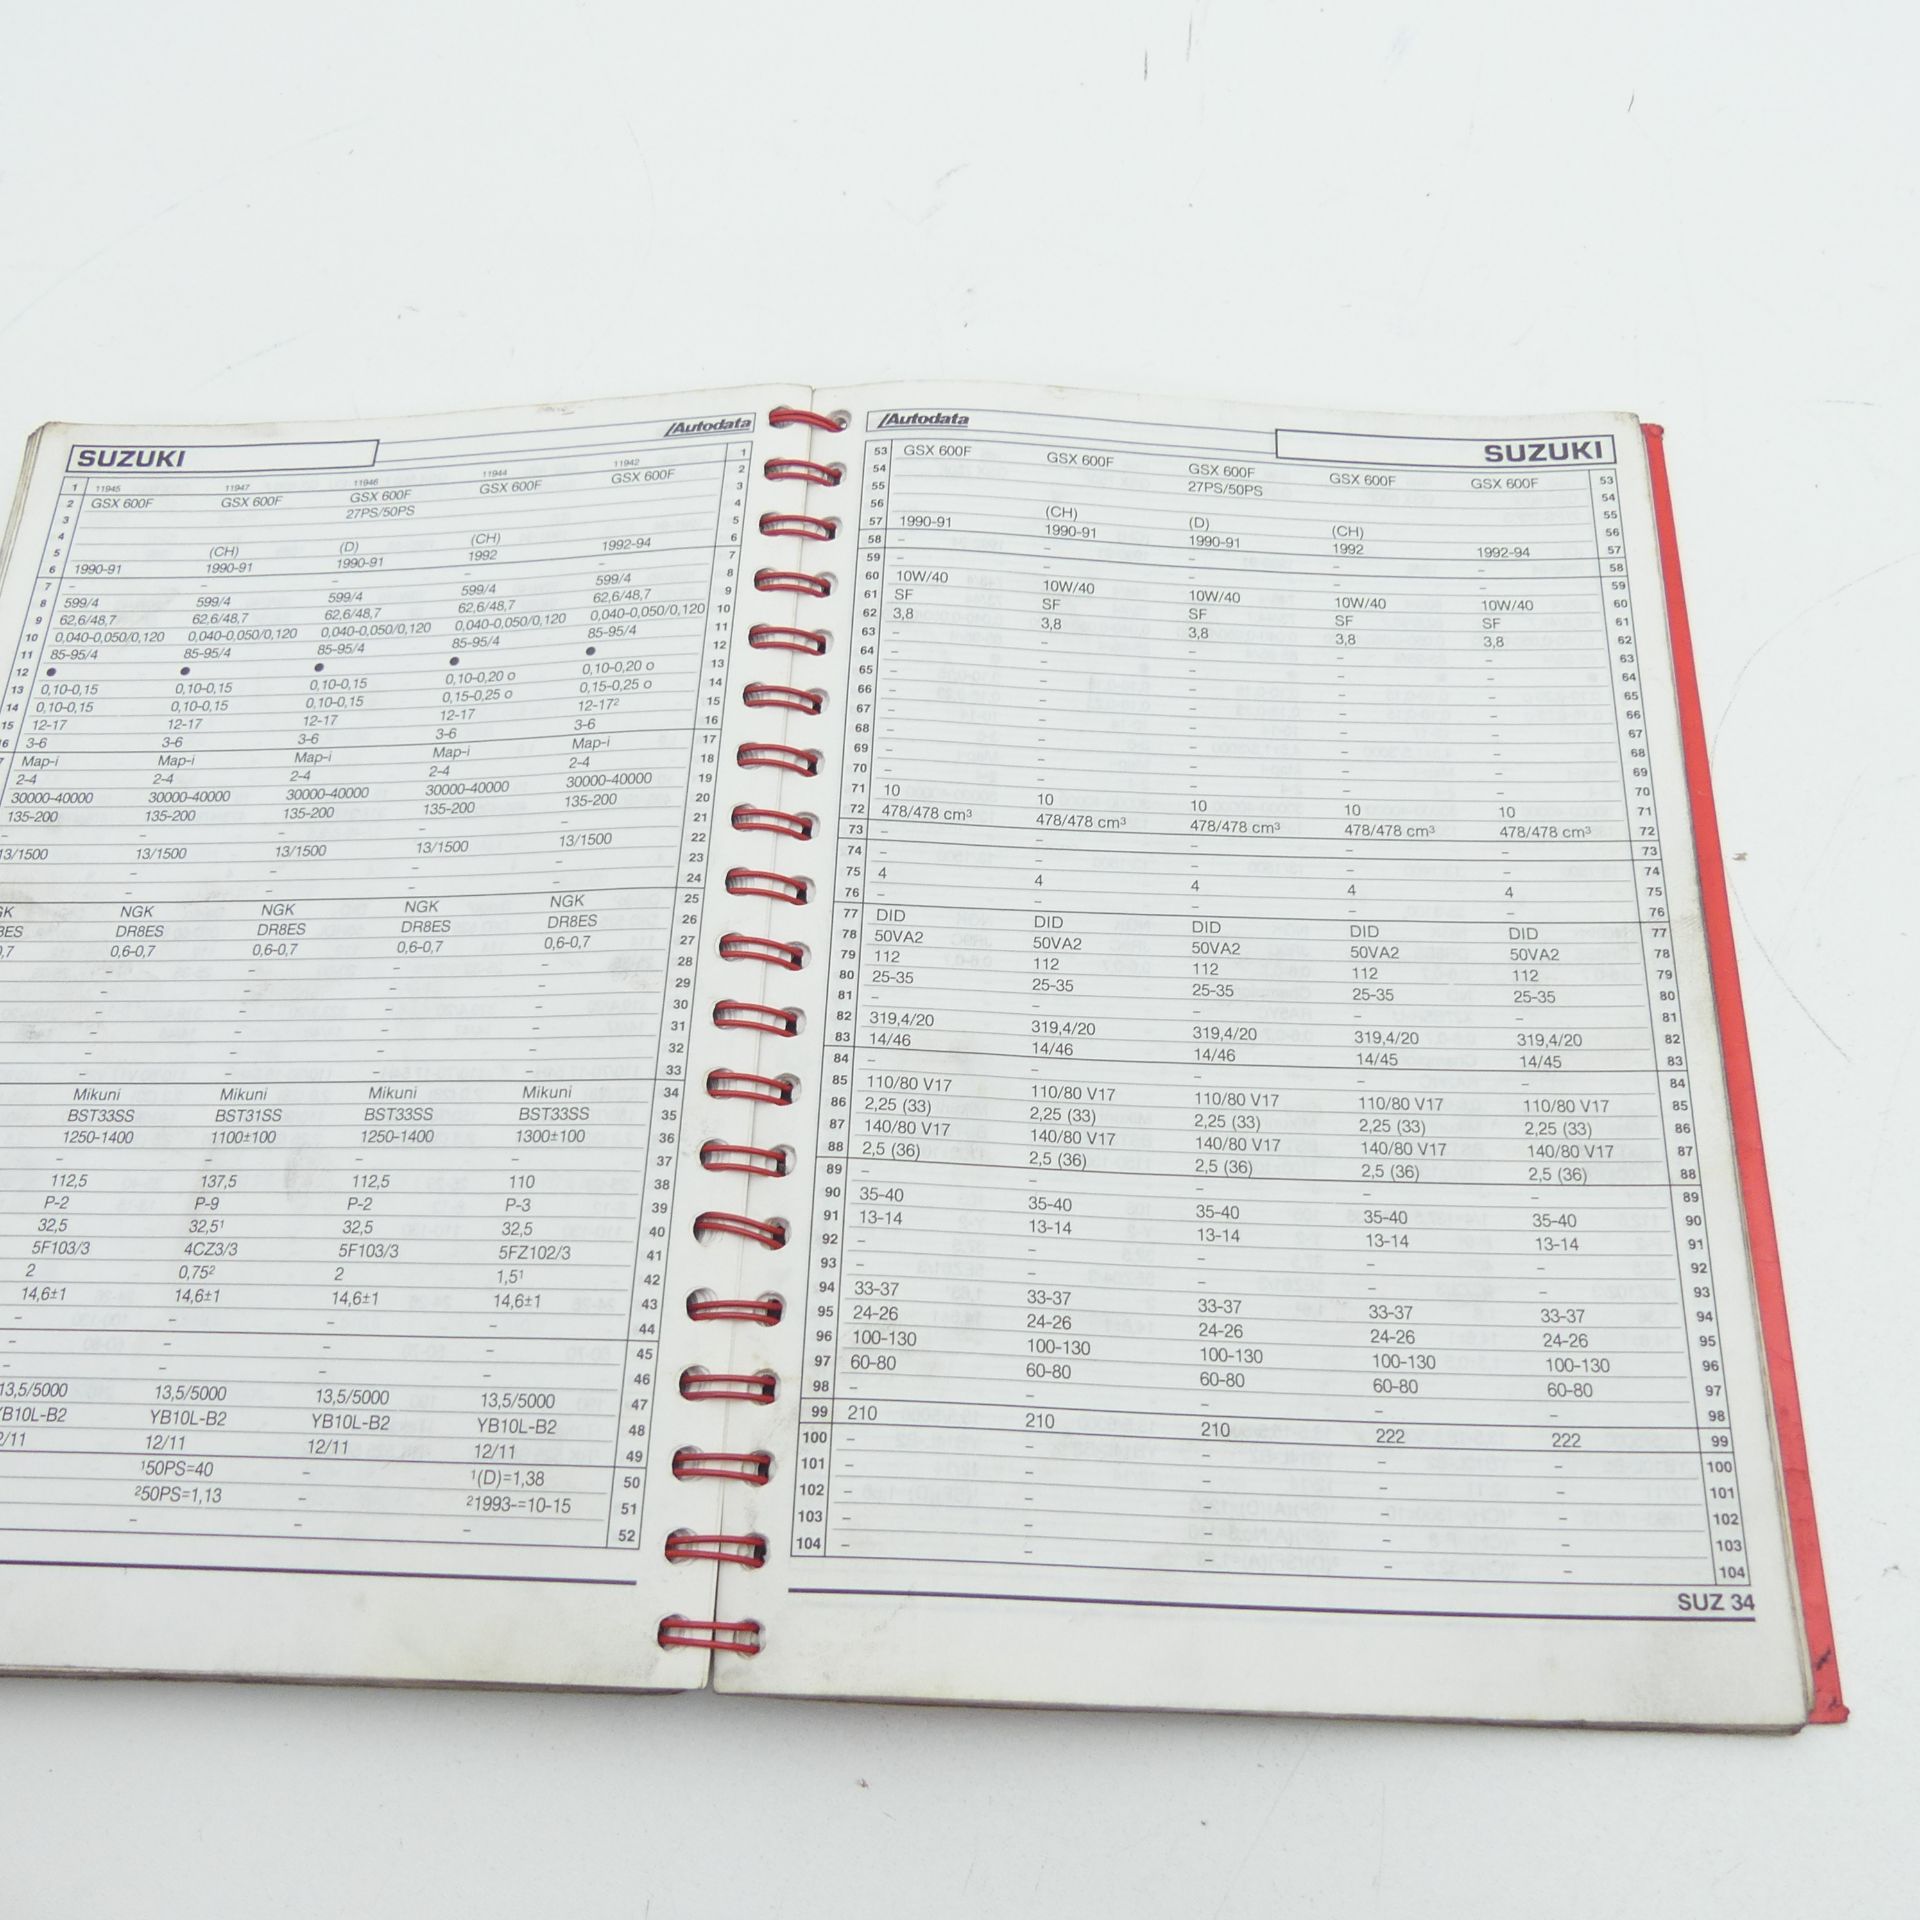 Autodata
SUZUKI
1 11945 11947 11946 11944 11942 1
2 GSX 600F GSX 600F GSX 600F GSX 600F GSX 600F 2
3 27PS/50PS 3
4 4
5 (CH) (D) (CH) 5
6 1990-91 1990-91 1990-91 1992 1992-94 6
7 – – – 7
8 599/4 599/4 599/4 599/4 599/4 8
9 62,6/48,7 62,6/48,7 62,6/48,7 62,6/48,7 62,6/48,7 9
10 0,040-0,050/0,120 0,040-0,050/0,120 0,040-0,050/0,120 0,040-0,050/0,120 0,040-0,050/0,120 10
11 85-95/4 85-95/4 85-95/4 85-95/4 85-95/4 11
12 ● ● ● ● ● 12
13 0,10-0,15 0,10-0,15 0,10-0,15 0,10-0,20 o 0,10-0,20 o 13
14 0,10-0,15 0,10-0,15 0,10-0,15 0,15-0,25 o 0,15-0,25 o 14
15 12-17 12-17 12-17 12-17 12-17² 15
3-6 3-6 3-6 3-6 3-6 16
Map-i Map-i Map-i Map-i Map-i 17
2-4 2-4 2-4 2-4 2-4 18
30000-40000 30000-40000 30000-40000 30000-40000 30000-40000 19
135-200 135-200 135-200 135-200 135-200 20
– – – – – 21
13/1500 13/1500 13/1500 13/1500 13/1500 22
– – – – 23
– – – – 24
NGK NGK NGK NGK 25
DR8ES DR8ES DR8ES DR8ES 26
0,6-0,7 0,6-0,7 0,6-0,7 0,6-0,7 27
– – – – 28
– – – – 29
– – – – 30
– – – – 31
– – – – 32
– – – – 33
Mikuni Mikuni Mikuni Mikuni 34
BST33SS BST31SS BST33SS BST33SS 35
1250-1400 1100±100 1250-1400 1300±100 36
– – – – 37
112,5 137,5 112,5 110 38
P-2 P-9 P-2 P-3 39
32,5 32,5¹ 32,5 32,5 40
5F103/3 4CZ3/3 5F103/3 5FZ102/3 41
2 0,75² 2 1,5¹ 42
14,6±1 14,6±1 14,6±1 14,6±1 43
– – – – 44
– – – – 45
– – – – 46
13,5/5000 13,5/5000 13,5/5000 13,5/5000 47
YB10L-B2 YB10L-B2 YB10L-B2 48
12/11 12/11 12/11 49
¹50PS=40 – ¹(D)=1,38 50
²50PS=1,13 – ²1993-=10-15 51
– – – 52
Autodata
SUZUKI
53 GSX 600F GSX 600F GSX 600F GSX 600F GSX 600F 53
54 27PS/50PS 54
55 55
56 (CH) (D) (CH) 56
57 1990-91 1990-91 1990-91 1992 1992-94 57
58 – – – – – 58
59 – – – – – 59
60 10W/40 10W/40 10W/40 10W/40 10W/40 60
61 SF SF SF SF SF 61
62 3,8 3,8 3,8 3,8 3,8 62
63 – – – – – 63
64 – – – – – 64
65 – – – – – 65
66 – – – – – 66
67 – – – – – 67
68 – – – – – 68
69 – – – – – 69
70 – – – – – 70
71 10 10 10 10 10 71
72 478/478 cm³ 478/478 cm³ 478/478 cm³ 478/478 cm³ 478/478 cm³ 72
73 – – – – – 73
74 – – – – – 74
75 4 4 4 4 4 75
76 – – – – – 76
77 DID DID DID DID DID 77
78 50VA2 50VA2 50VA2 50VA2 50VA2 78
79 112 112 112 112 112 79
80 25-35 25-35 25-35 25-35 25-35 80
81 – – – – – 81
82 319,4/20 319,4/20 319,4/20 319,4/20 319,4/20 82
83 14/46 14/46 14/46 14/45 14/45 83
84 – – – – – 84
85 110/80 V17 110/80 V17 110/80 V17 110/80 V17 110/80 V17 85
86 2,25 (33) 2,25 (33) 2,25 (33) 2,25 (33) 2,25 (33) 86
87 140/80 V17 140/80 V17 140/80 V17 140/80 V17 140/80 V17 87
88 2,5 (36) 2,5 (36) 2,5 (36) 2,5 (36) 2,5 (36) 88
89 – – – – – 89
90 35-40 35-40 35-40 35-40 35-40 90
91 13-14 13-14 13-14 13-14 13-14 91
92 – – – – – 92
93 – – – – – 93
94 33-37 33-37 33-37 33-37 33-37 94
95 24-26 24-26 24-26 24-26 24-26 95
96 100-130 100-130 100-130 100-130 100-130 96
97 60-80 60-80 60-80 60-80 60-80 97
98 – – – – – 98
99 210 210 210 222 222 99
100 – – – – – 100
101 – – – – – 101
102 – – – – – 102
103 – – – – – 103
104 – – – – – 104
SUZ 34